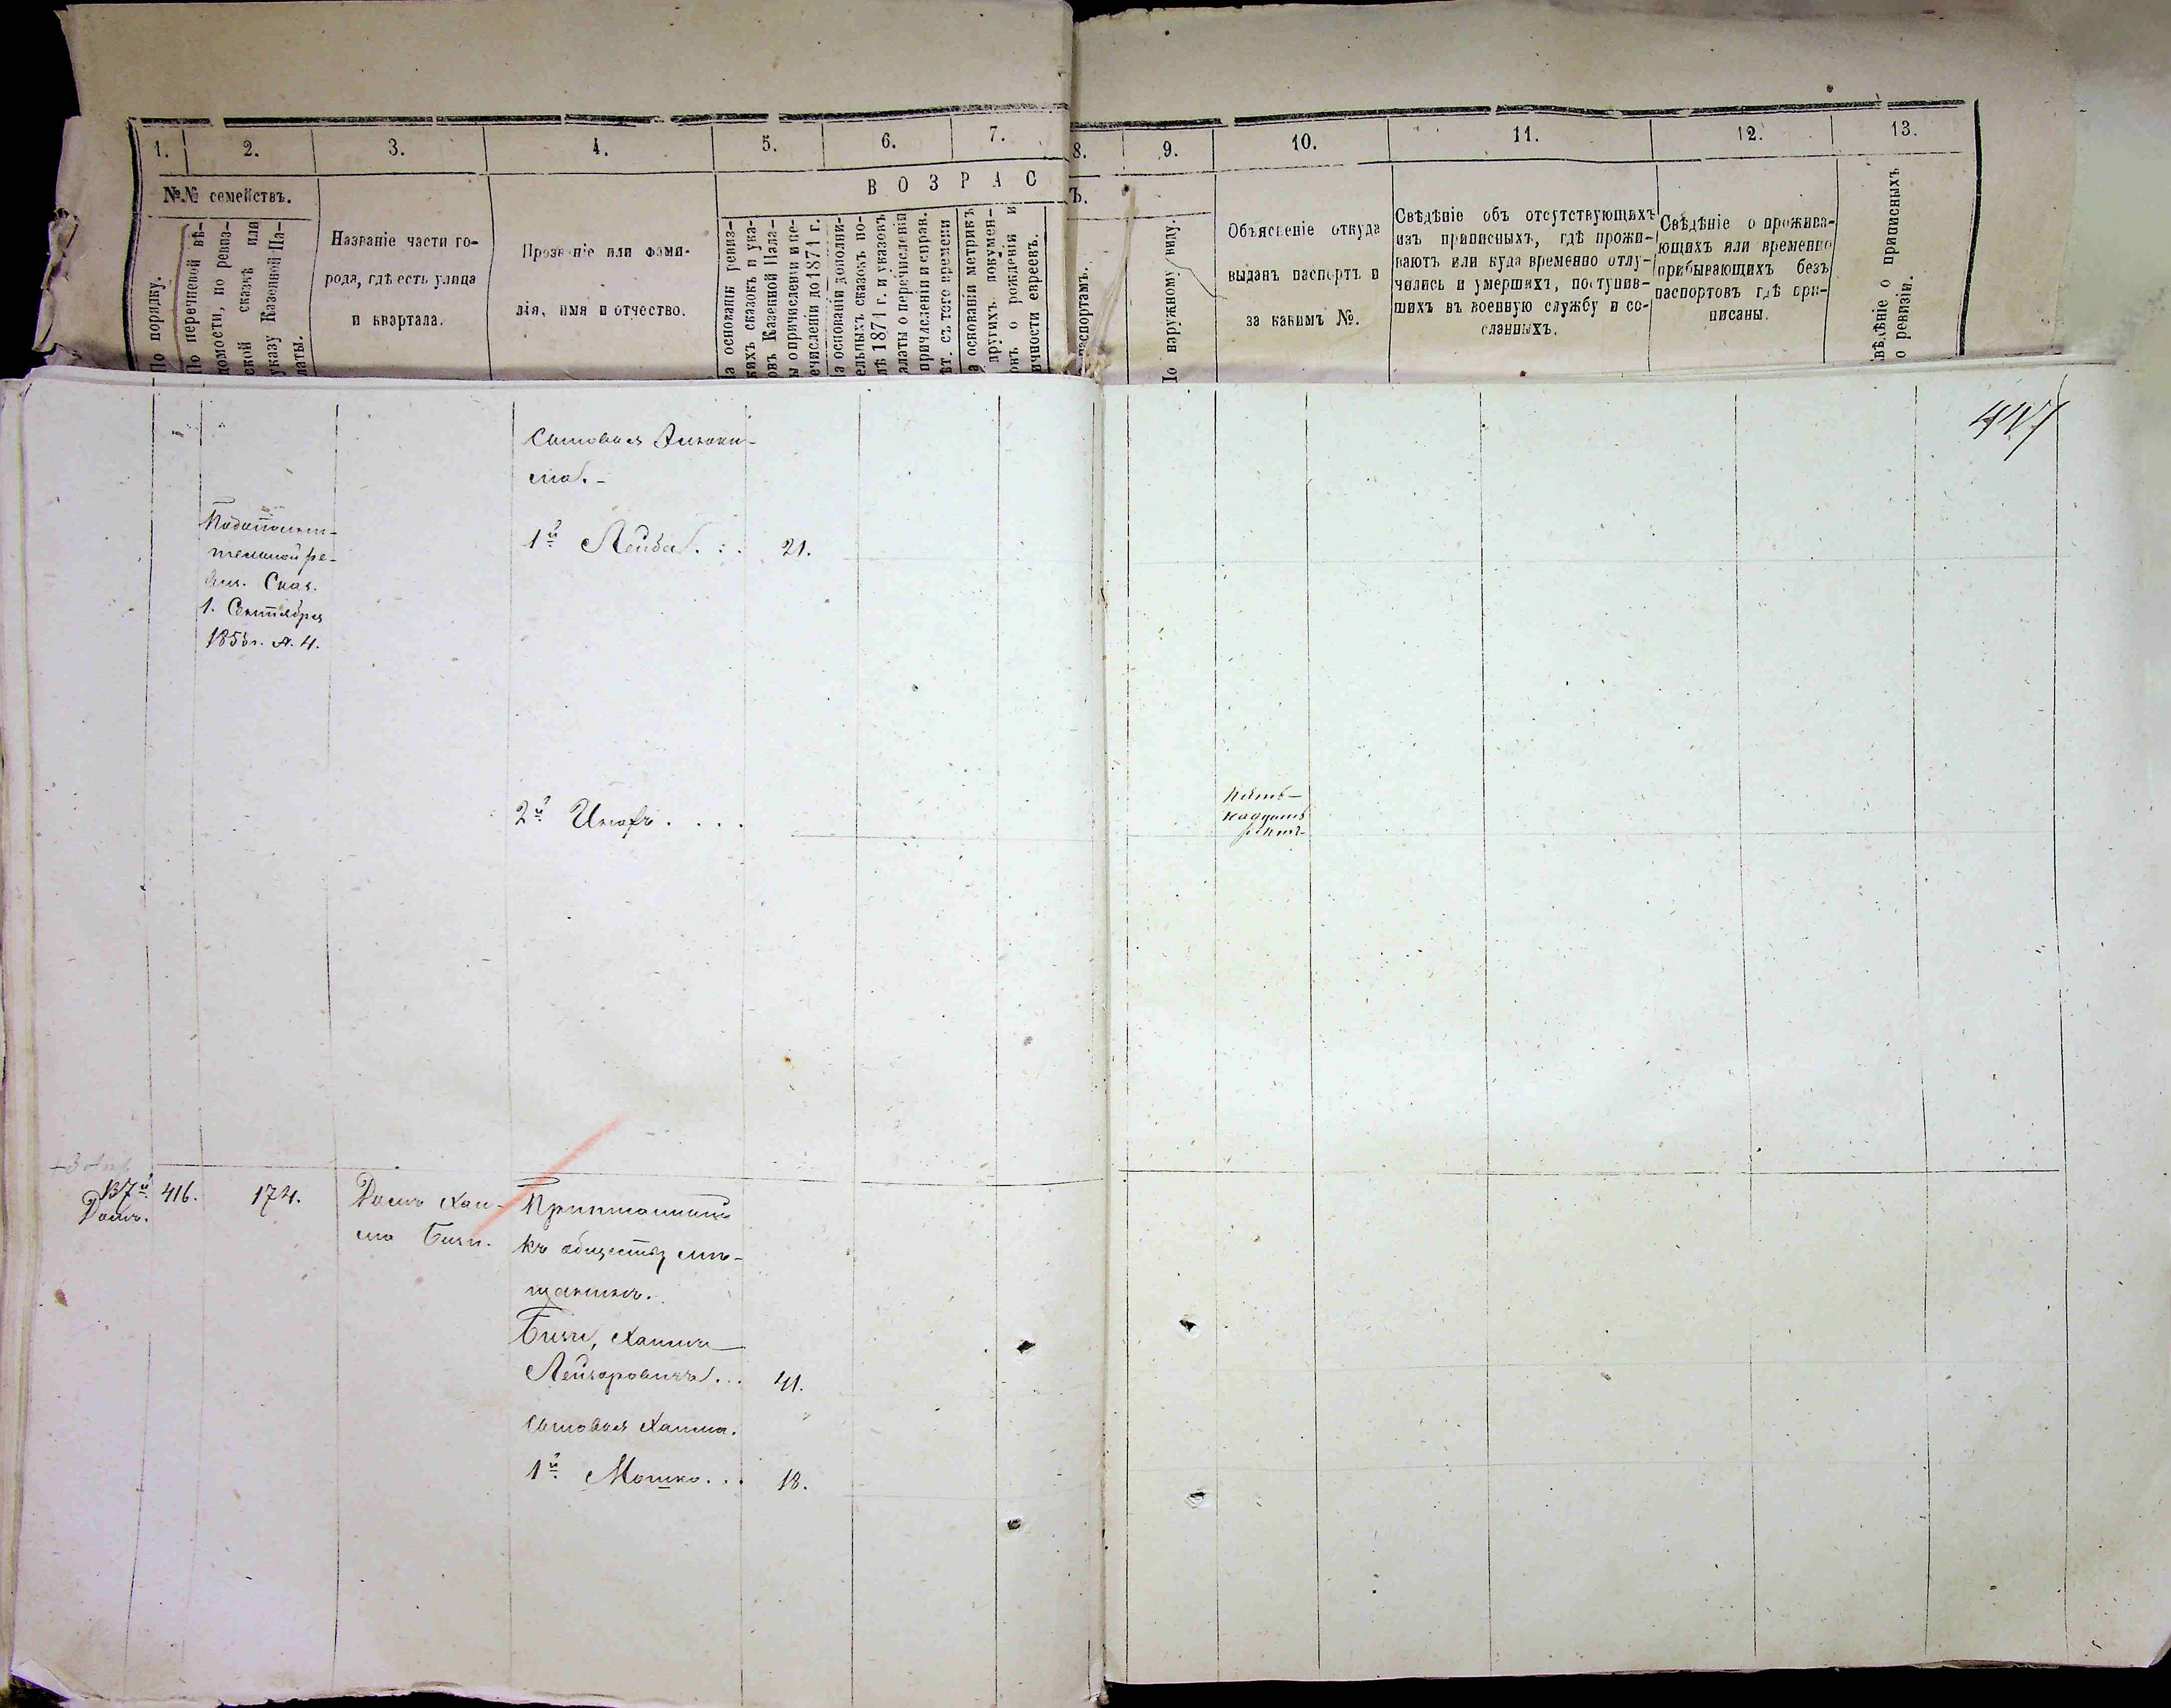 1.
2.
3.
4.
5.
6.
7.
8.
9.
10.
11.
12.
13.
№№ семействъ.
По порядку.
По перечневой вѣ-
домости, по ревиз-
ской сказкѣ или
указу Казенной Па-
латы.
Названіе части го-
рода, гдѣ есть улица
и квартала.
Прозваніе или фами-
лія, имя и отчество.
ВОЗРАС
Ъ.
а основаніи ревиз-
кихъ сказокъ и ука-
овъ Казенной Пала-
ы о причисленіи и пе-
ечисленіи до 1871 г.
а основаніи дополни-
ельныхъ сказокъ по-
лѣ 1871 г. и указовъ
алаты о перечисленіи
причисленіи и справ.
ѣт. съ того времени
а основаніи метрикъ
другихъ докумен-
овъ о рожденіи и
ичности евреевъ.
паспортамъ.
По наружному виду.
Объясненіе откуда
выданъ паспортъ и
за какимъ №.
Свѣдѣніе объ отсутствующихъ
изъ приписныхъ, гдѣ прожи-
ваютъ или куда временно отлу-
чились и умершихъ, поступив-
шихъ въ военную службу и со-
сланныхъ.
Свѣдѣніе о прожива-
ющихъ или временно
прибывающихъ безъ
паспортовъ гдѣ при-
писаны.
вѣдѣніе о приписныхъ
о ревизіи.
447
Сыновья
1й Лейба 21.
ре-
виз. Сказ.
1. Сентября
185
№ 4.
2й
Пят-
надцать
лѣтъ
137й
Домъ.
416.
174.
Домъ Хаи-
ма
къ обществу мѣ-
щанинъ.
Хаимъ
Лейзоровичъ... 41.
Сыновья Хаима.
1й Мошко... 18.